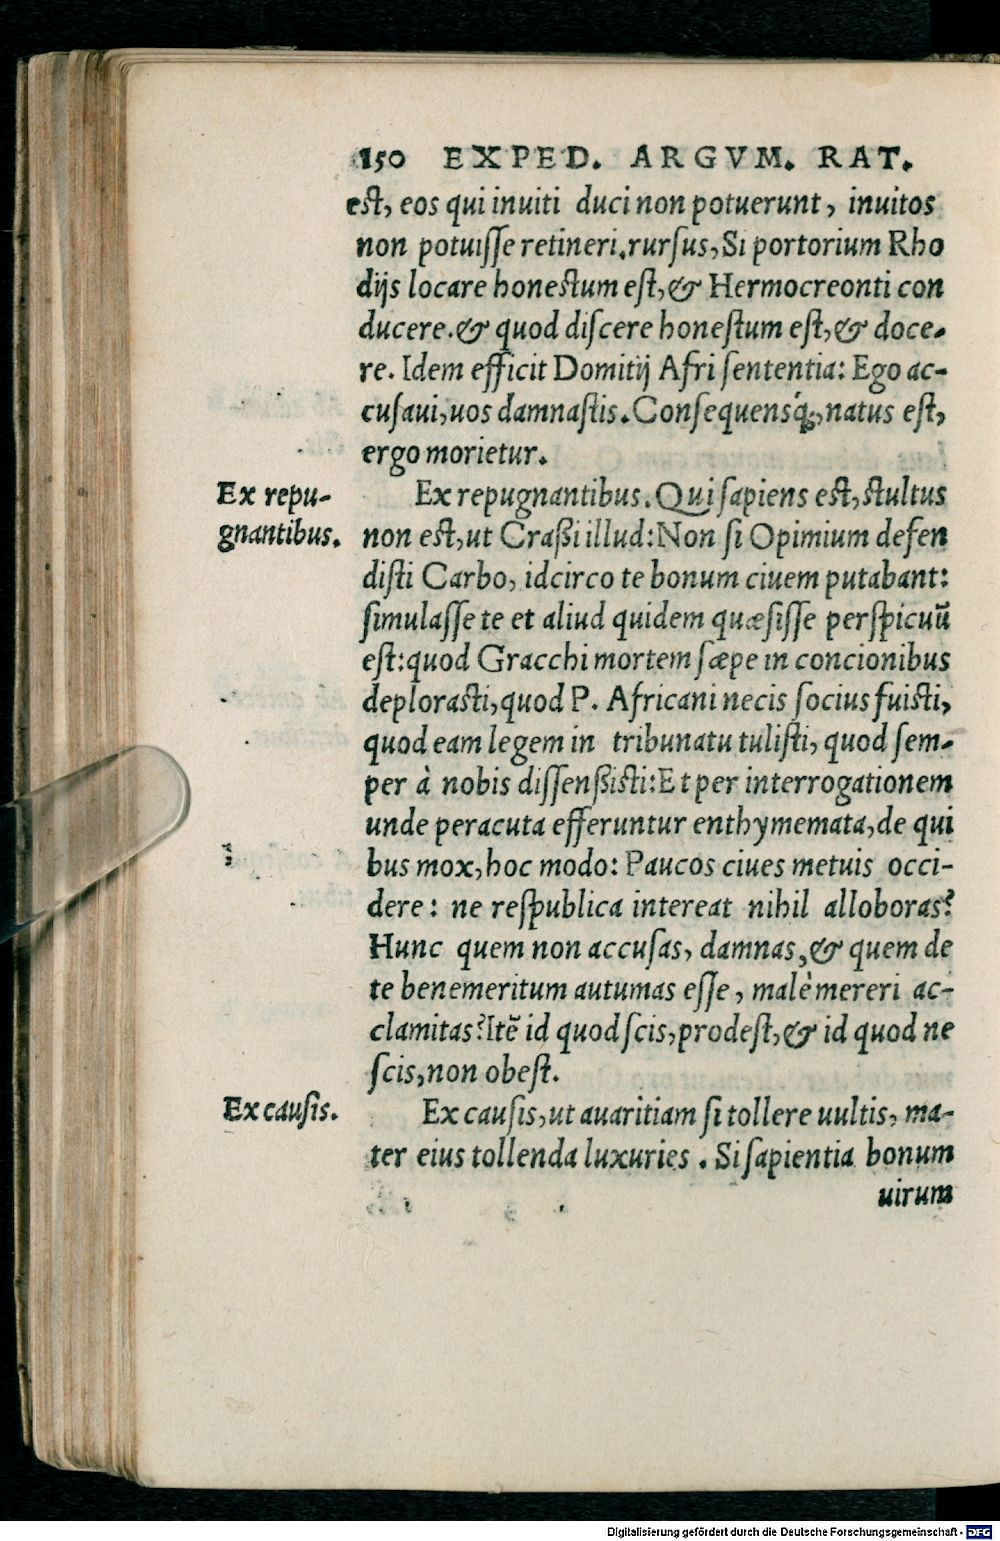 150 EXPED. ARGVM. RAT.
est, eos qui inuiti duci non potuerunt, inuitos
non potuisse retineri. rursus, Si portorium Rho
dijs locare honestum est, & Hermocreonti con
ducere. & quod discere honestum est, & doce-
re. Idem efficit Domitij Afri sententia: Ego ac-
cusaui, uos damnastis. Consequensq́;, natus est,
ergo morietur.
Ex repu-
gnantibus.
Ex repugnantibus. Qui sapiens est, stultus
non est, ut Craßi illud: Non si Opimium defen
disti Carbo, idcirco te bonum ciuem putabant:
simulasse te et aliud quidem quæsisse perspicuũ
est: quod Gracchi mortem sæpe in concionibus
deplorasti, quod P. Africani necis socius fuisti,
quod eam legem in tribunatu tulisti, quod sem-
per à nobis dissenßisti: Et per interrogationem
unde peracuta efferuntur enthymemata, de qui
bus mox, hoc modo: Paucos ciues metuis occi-
dere: ne respublica intereat nihil alloboras?
Hunc quem non accusas, damnas, & quem de
te benemeritum autumas esse, malè mereri ac-
clamitas? Itẽ id quod scis, prodest, & id quod ne
scis, non obest.
Ex causis.
Ex causis, ut auaritiam si tollere uultis, ma-
ter eius tollenda luxuries. Si sapientia bonum
uirum
Digitalisierung gefördert durch die Deutsche Forschungsgemeinschaft - DFG